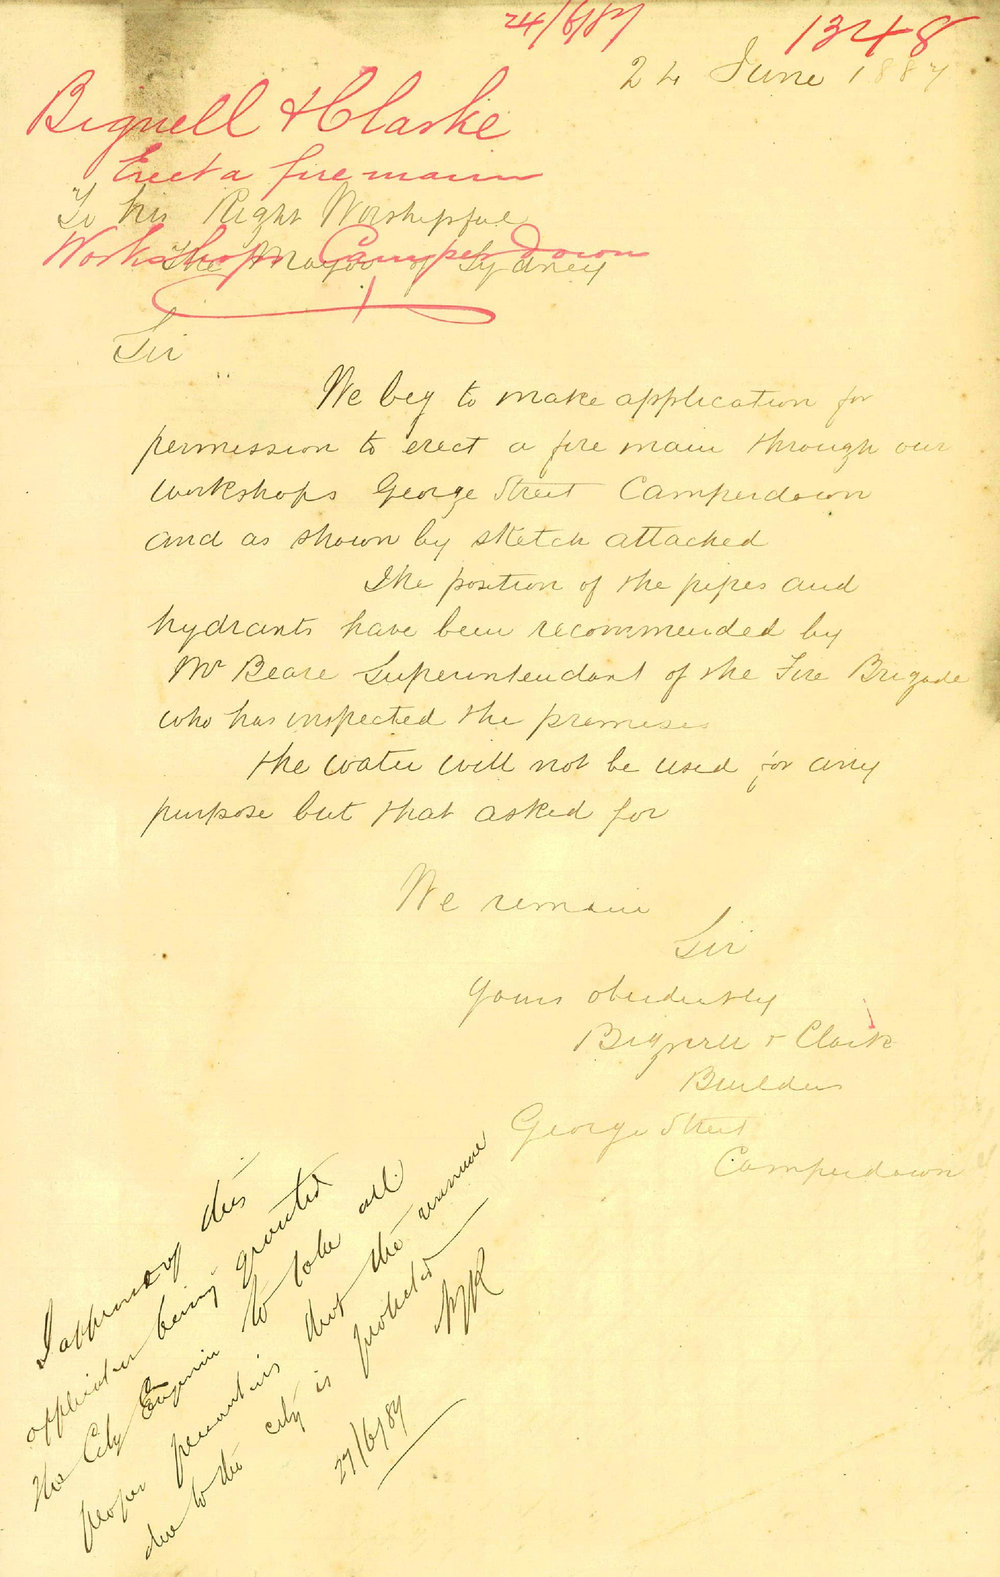 24/6/87
1348
24 June 1887
Bignell & Clarke
Erect a fire main
Workshops Camperdown
To his Right Worshipful
The Mayor of Sydney
Sir
We beg to make application for
permission to erect a fire main through our
workshops George Street Camperdown
and as shown by sketch attached
The position of the pipes and
hydrants have been recommended by
Mr Beare Superintendant of the Fire Brigade
who has inspected the premises
the water will not be used for any
purpose but that asked for
We remain
Sir
Yours obediently
Bignell & Clark
Builders
George Street
Camperdown
I approve of this
application being granted
the City Engineer to take all
proper precautions that the revenue
due to the city is protected
27/6/87